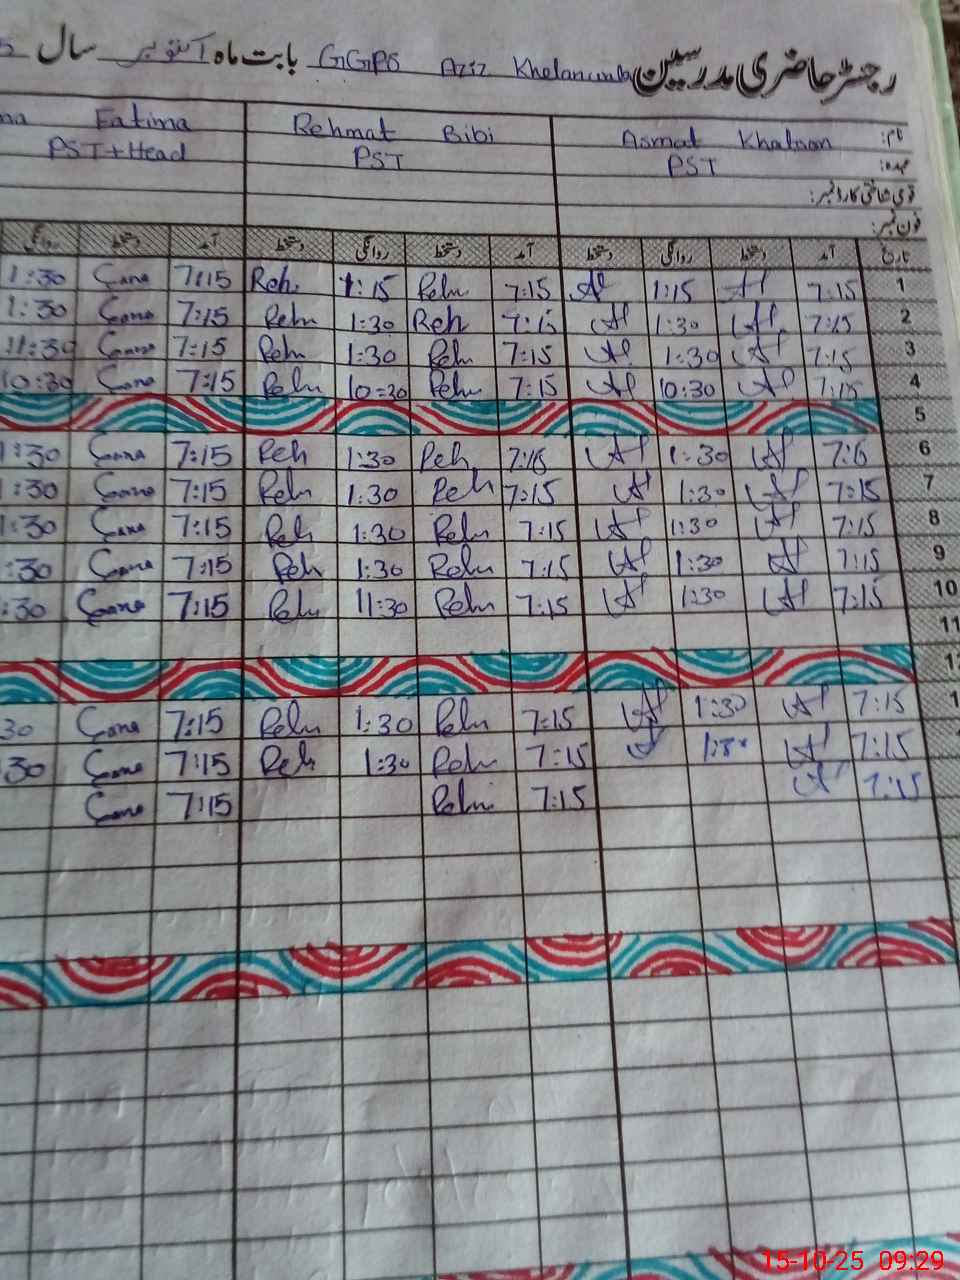 رجسٹر حاضری مدرسین GGPS Aziz Khelanwala بابت ماہ اکتوبر سال
نام: Asmat Khatoon Rehmat Bibi Fatima
عہدہ: PST PST PST+Head
قومی شناختی کارڈ نمبر:
فون نمبر:
تاریخ آمد دستخط روانگی دستخط آمد دستخط روانگی دستخط آمد دستخط روانگی
1 7:15 Al 1:15 Al 7:15 Reh 1:15 Reh 7:15 1:30
2 7:15 Al 1:30 Al 7:15 Reh 1:30 Reh 7:15 1:30
3 7:15 Al 1:30 Al 7:15 Reh 1:30 Reh 7:15 11:30
4 7:15 Al 10:30 Al 7:15 Reh 10:20 Reh 7:15 10:30
5
6 7:15 Al 1:30 Al 7:15 Reh 1:30 Reh 7:15 1:30
7 7:15 Al 1:30 Al 7:15 Reh 1:30 Reh 7:15 1:30
8 7:15 Al 1:30 Al 7:15 Reh 1:30 Reh 7:15 1:30
9 7:15 Al 1:30 Al 7:15 Reh 1:30 Reh 7:15 :30
10 7:15 Al 1:30 Al 7:15 Reh 11:30 Reh 7:15 :30
11
7:15 Al 1:30 Al 7:15 Reh 1:30 Reh 7:15 30
7:15 Al 7:15 Reh 1:30 Reh 7:15 30
7:15 Al 7:15 Reh 7:15
15-10-25 09:29